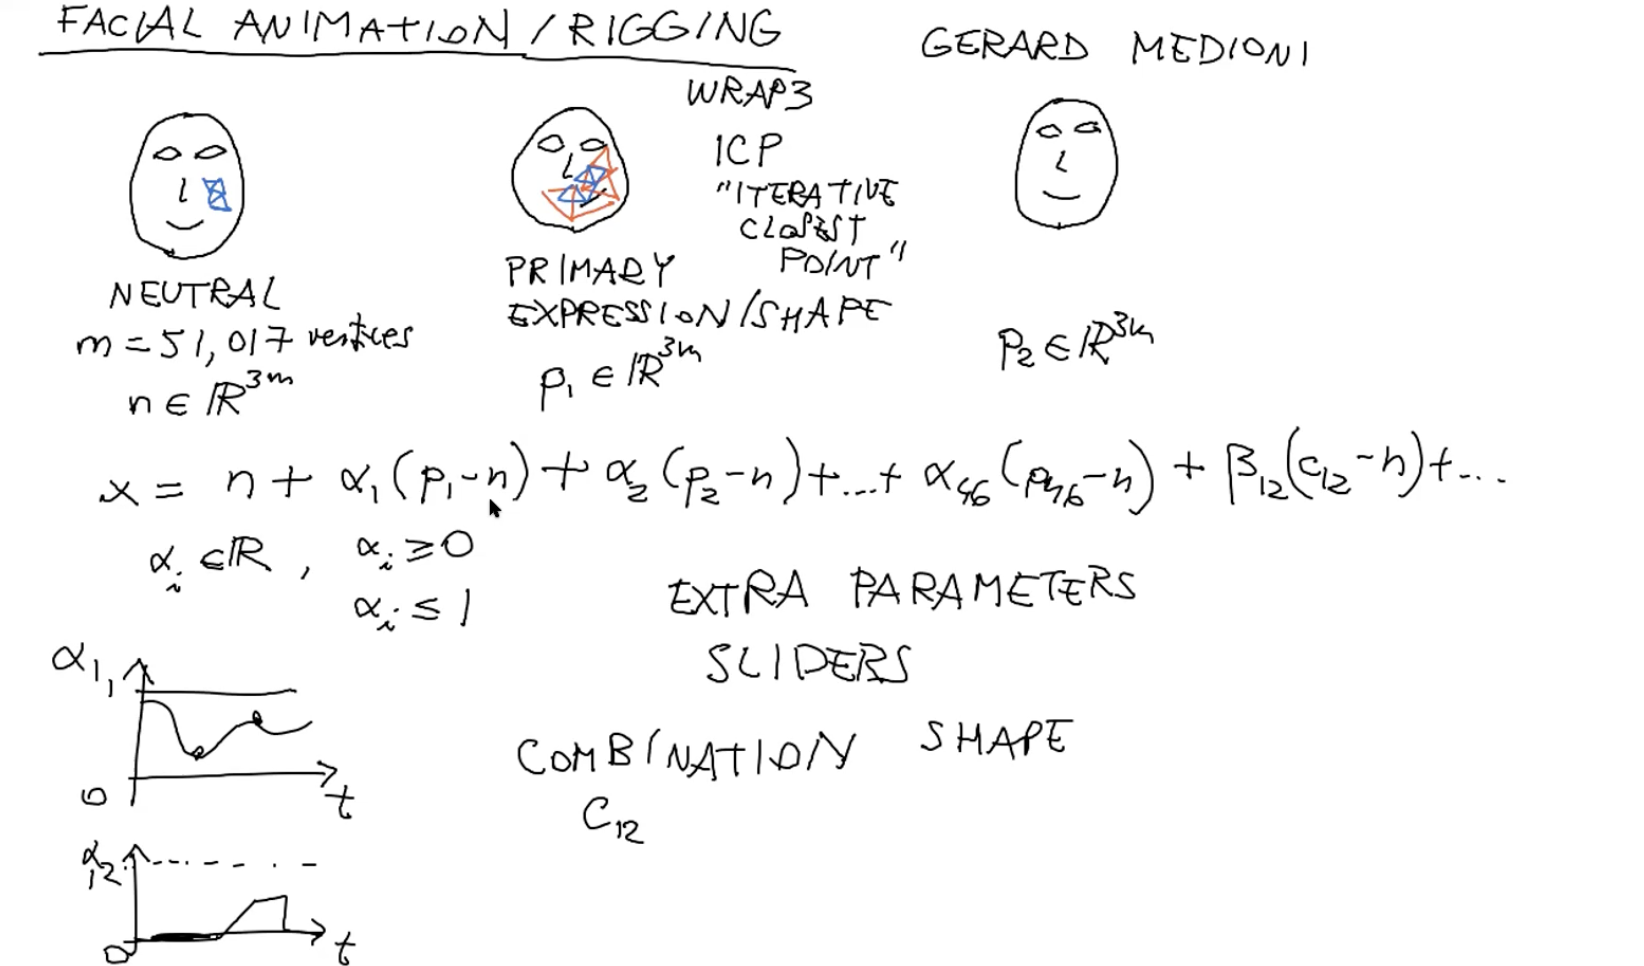 FACIAL ANIMATION / RIGGING
GERARD MEDIONI
WRAP3
ICP
"ITERATIVE
CLOSEST
POINT"
NEUTRAL
m = 51,017 vertices
n ∈ ℝ^3m
PRIMARY
EXPRESSION/SHAPE
p₁ ∈ ℝ^3m
p₂ ∈ ℝ^3m
x = n + α₁(p₁-n) + α₂(p₂-n) + ... + α₄₆(p₄₆-n) + β₁₂(c₁₂-n) + ...
αᵢ ∈ ℝ, αᵢ ≥ 0
αᵢ ≤ 1
EXTRA PARAMETERS
SLIDERS
COMBINATION SHAPE
C₁₂
α₁
1
0
t
α₂
1
0
t